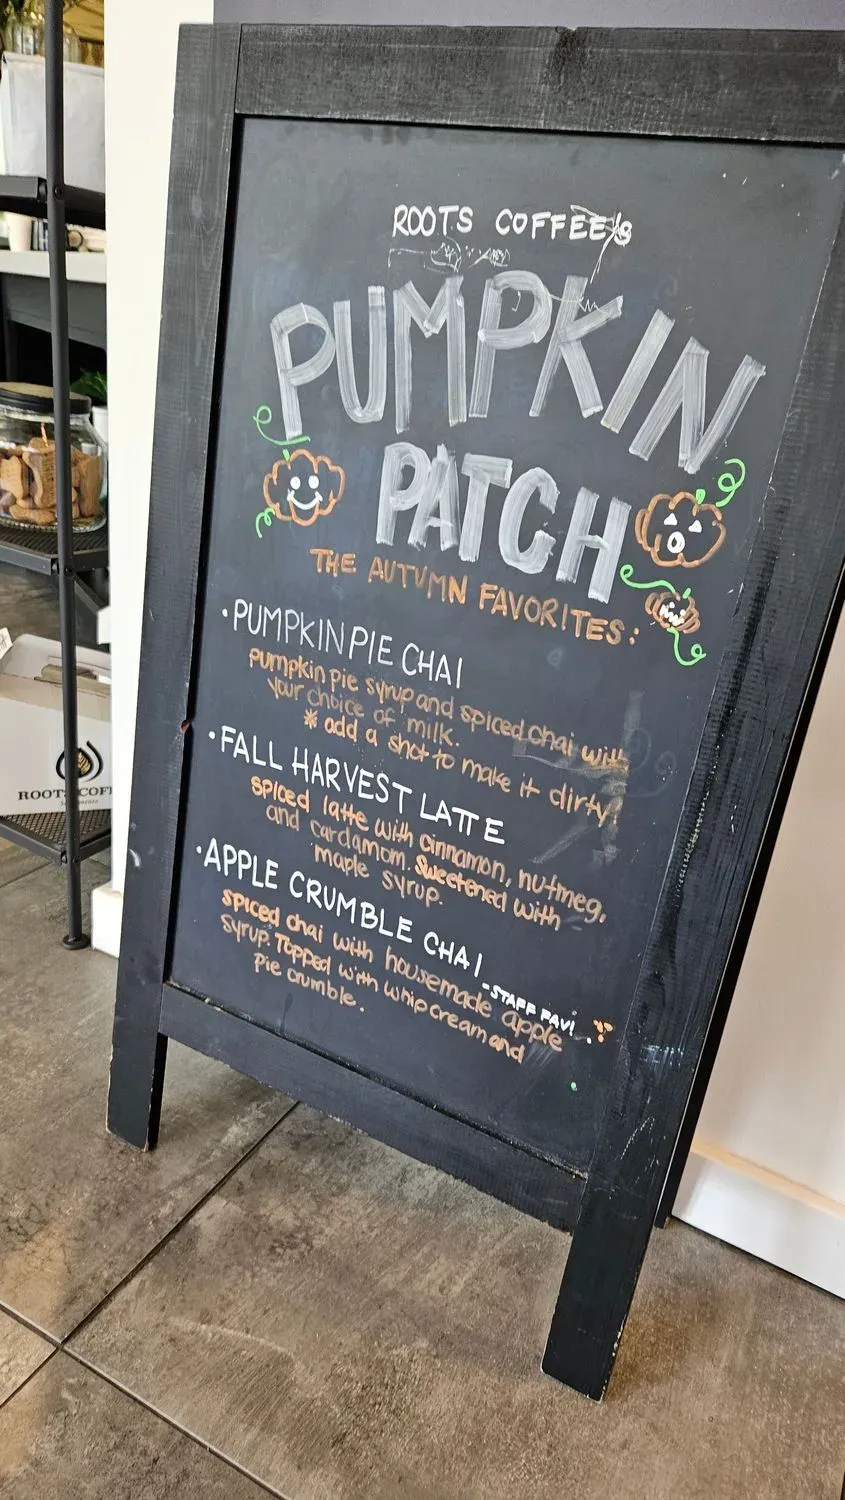 ROOTS COFFEE'S
PUMPKIN
PATCH
THE AUTUMN FAVORITES:
• PUMPKIN PIE CHAI
pumpkin pie syrup and spiced chai with
your choice of milk.
* add a shot to make it dirty!
• FALL HARVEST LATTE
spiced latte with cinnamon, nutmeg,
and cardamom. Sweetened with
maple syrup.
• APPLE CRUMBLE CHAI
-STAFF FAV!
spiced chai with housemade apple
syrup. Topped with whip cream and
pie crumble.
ROOTS COF